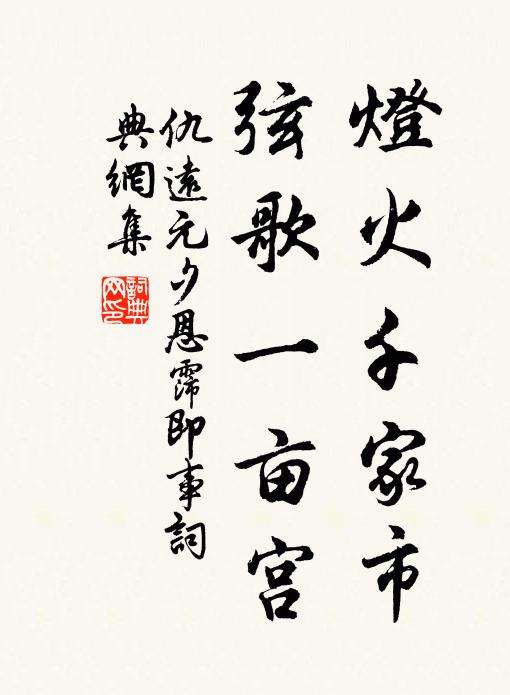 燈火千家市
弦歌一亩宫
仇遠元夕恩霈即事詞
典網集
詞典
网印